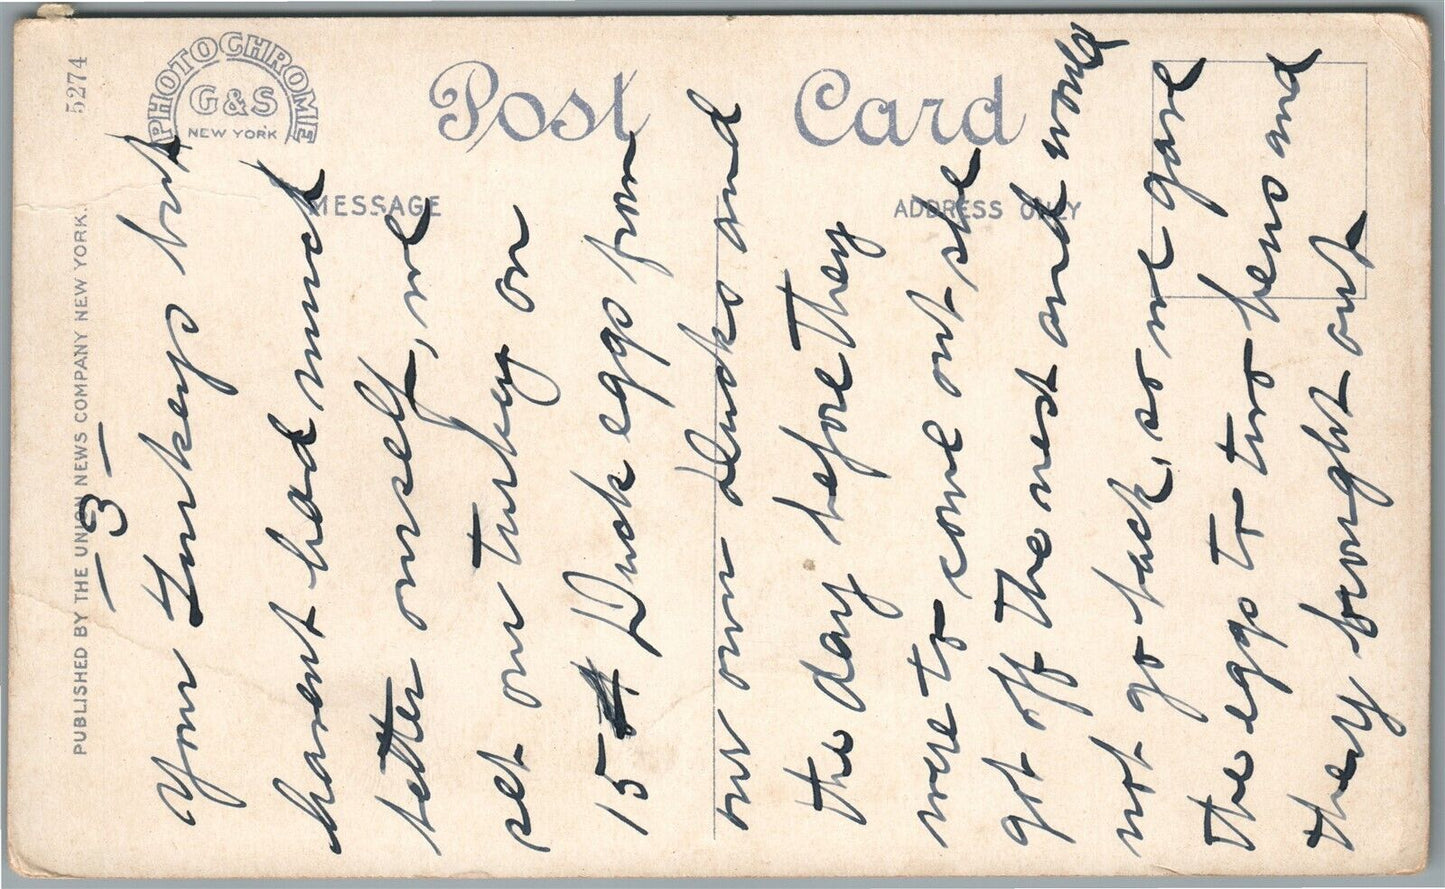 5274
PHOTOCHROME
G&S
NEW YORK
Post Card
MESSAGE
ADDRESS ONLY
PUBLISHED BY THE UNION NEWS COMPANY NEW YORK.
- 3 -
your turkeys but
havent had much
better ourself, we
set our turkey on
15 Duck eggs from
our own ducks and
the day before they
were to come out she
got off the nest and would
not go back, so we gave
the eggs to two hens and
they brought out